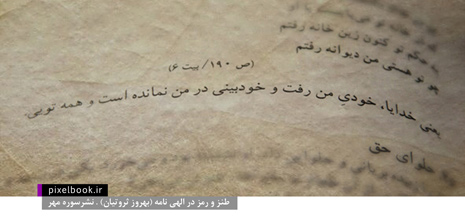 به حکم تو کنون زین خانه رفتم
چو تو هستی من دیوانه رفتم
(ص ۱۹۰/ بیت ۶)
یعنی خدایا، خودیِ من رفت و خودبینی در من نمانده است و همه تویی.
حلوای حق
pixelbook.ir
طنز و رمز در الهی نامه (بهروز ثروتیان) . نشرسوره مهر